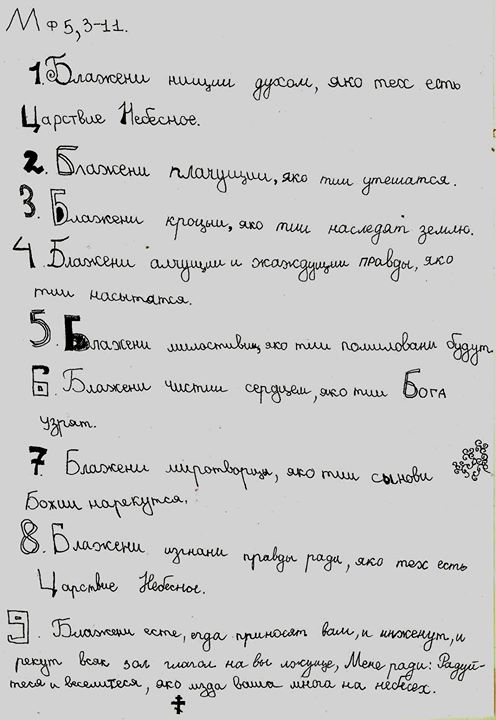 Мф 5, 3-11.
1. Блажени нищии духом, яко тех есть
Царствие Небесное.
2. Блажени плачущии, яко тии утешатся.
3. Блажени кроции, яко тии наследят землю.
4. Блажени алчущии и жаждущии правды, яко
тии насытятся.
5. Блажени милостивии, яко тии помиловани будут
6. Блажени чистии сердцем, яко тии Бога
узрят.
7. Блажени миротворци, яко тии сынови
Божии нарекутся.
8. Блажени изгнани правды ради, яко тех есть
Царствие Небесное.
9. Блажени есте, егда приносят вам, и ижженут, и
рекут всяк зол глагол на вы лжуще, Мене ради: Радуй-
теся и веселитеся, яко мзда ваша многа на небесех.